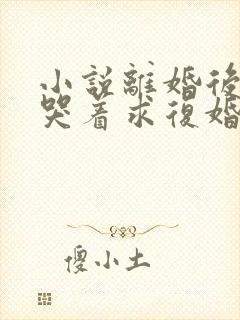 小說離婚後
哭着求復婚
傻小土